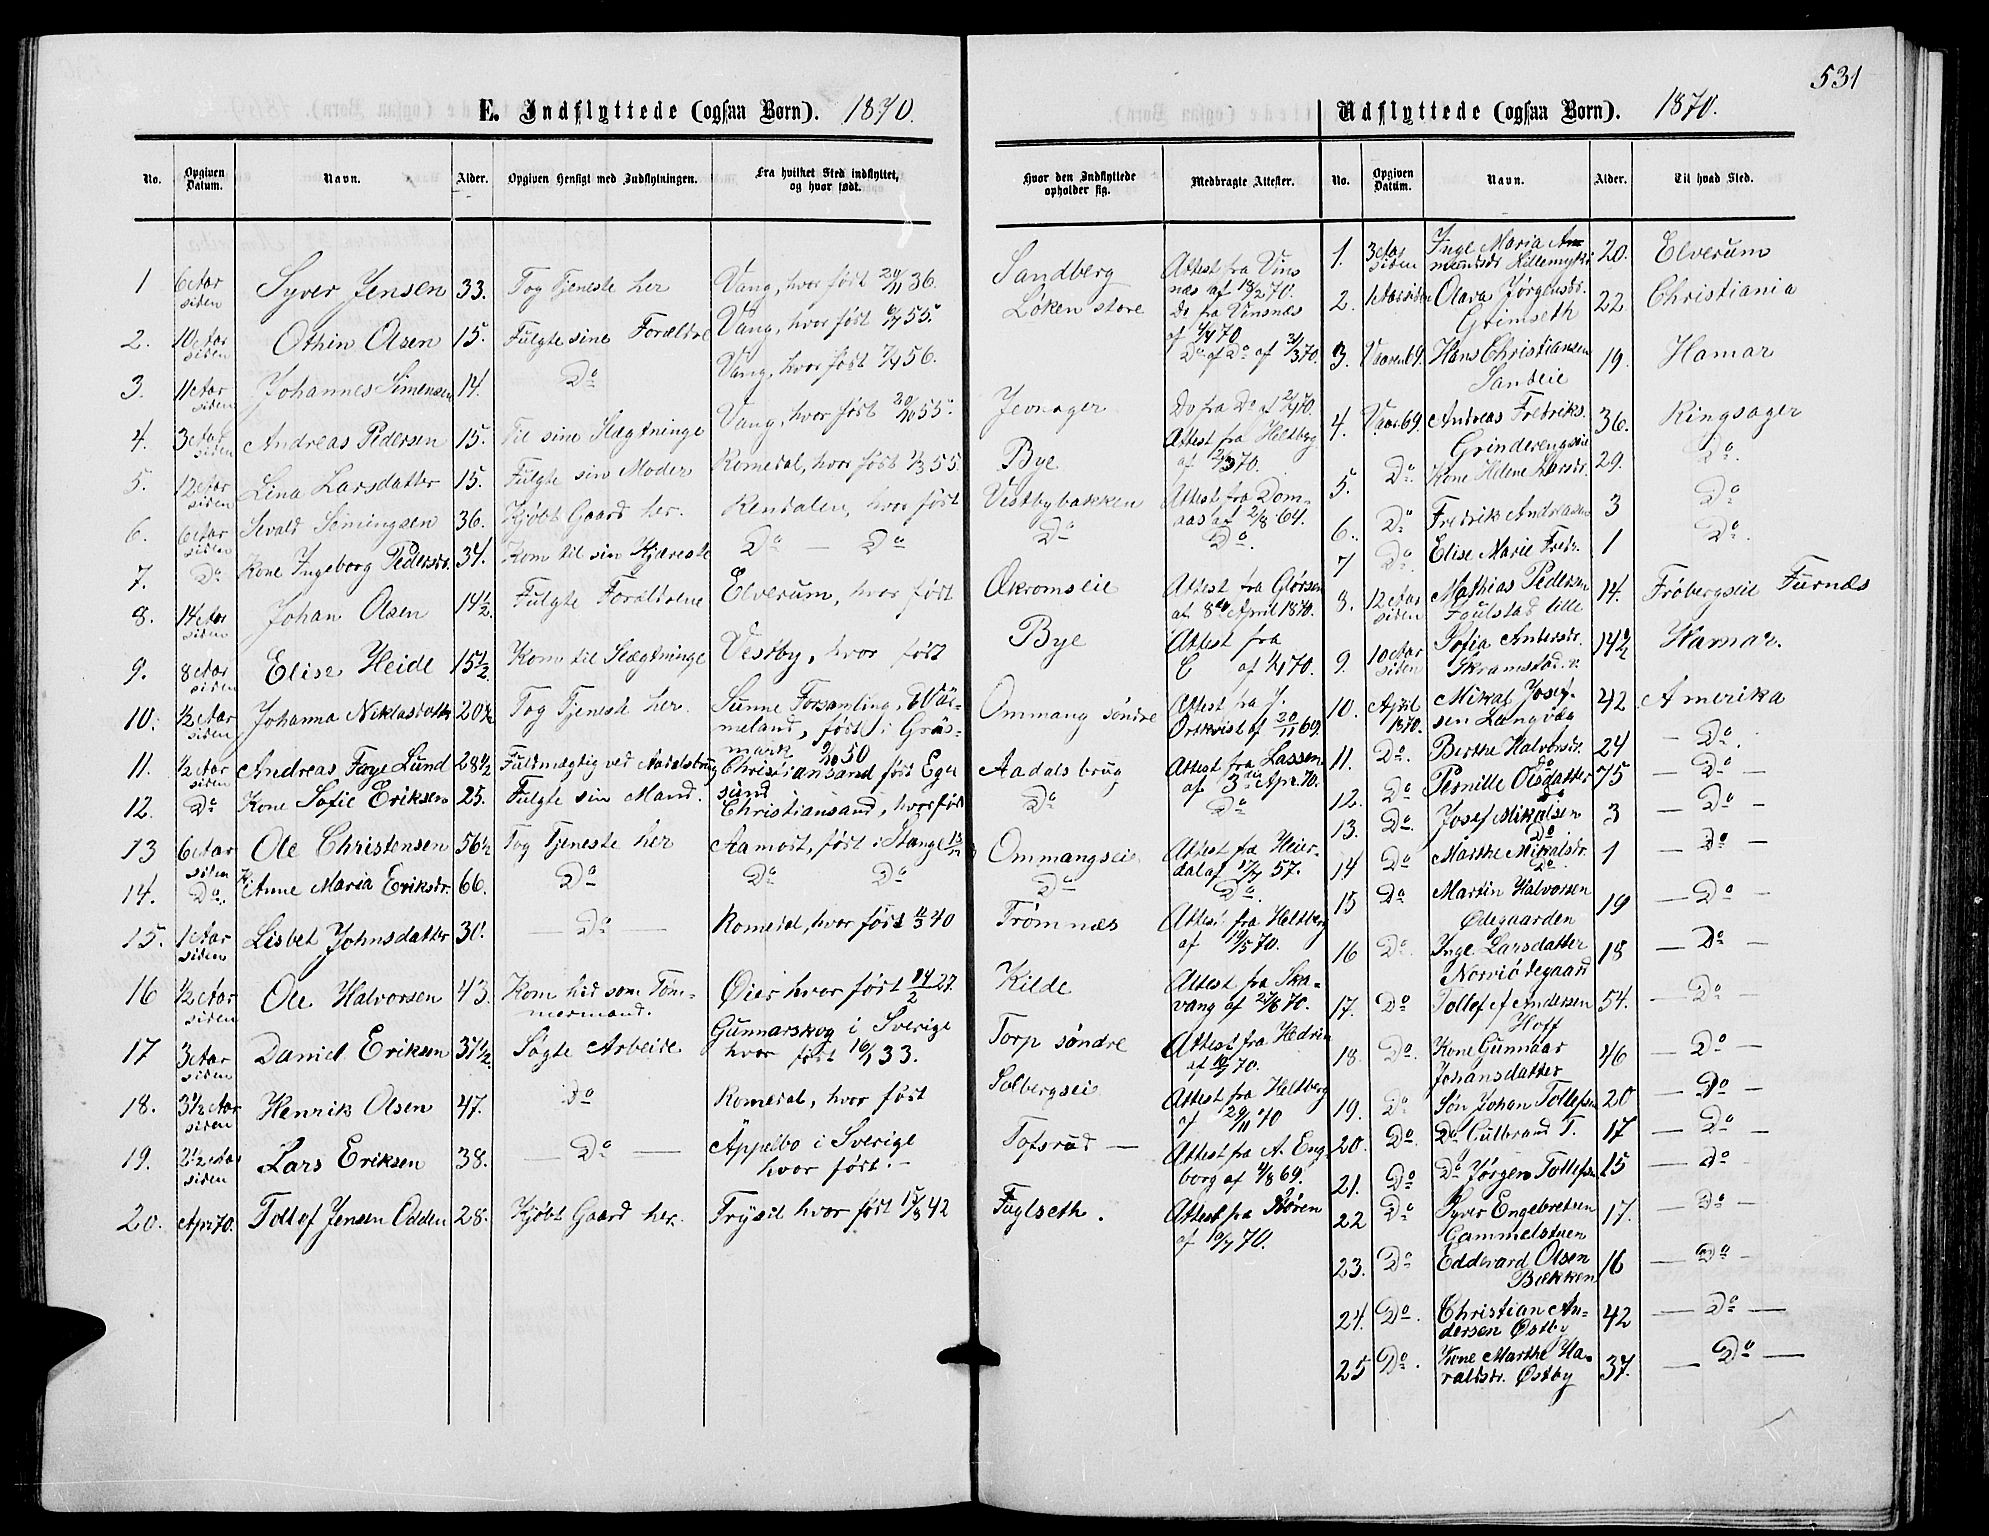 531
E. Indflyttede (ogsaa Børn). 1870.
No. Opgiven Datum. Navn. Alder. Opgiven Hensigt med Indflytningen. Fra hvilket Sted indflyttet, og hvor født.
1 6 Aar siden Syver Jensen 33. Tog Tjeneste her Vang, hvor født 20/11 36.
2. 10 Aar siden Othin Olsen 15. Fulgte sine Forældre Vang, hvor født 55.
3. 11 Aar siden Johannes Simensen 14. Do Vang, hvor født 56.
4. 3 Aar siden Andreas Pedersen 15. Til sine Slægtninge Vang, hvor født 55.
5. 12 Aar siden Lina Larsdatter 15. Fulgte sin Moder Romedal, hvor født 55.
6. 6 Aar siden Sevald Simingsen 36. Kjøbt Gaard her. Rendalen, hvor født
7. Do Kone Ingeborg Pedersdr. 34. Kom til sin Kjæreste Do — Do
8. 14 Aar siden Johan Olsen 14 1/2. Fulgte Forældrene Elverum, hvor født
9. 8 Aar siden Elise Heide 15 1/2. Kom til Slægtninge Vestby, hvor født
10. 1/2 Aar siden Johanna Niklasdatter 20 1/2 Tog Tjeneste her. Sunne Forsamling, Vär-
meland, født i Gräs-
mark 50
11. 1/2 Aar siden Andreas Faye Lund 28 1/2 Fuldmægtig ved Aadalsbrug Christiansand født Eger
sund
12. Do Kone Sofie Eriksen 25. Fulgte sin Mand. Christiansand, hvor født
13 6 Aar siden Ole Christensen 56 1/2 Tog Tjeneste her Aamodt, født i Stange
14. Do. Anne Maria Eriksdr. 66. Do Do Do
15. 1 Aar siden Lisbet Johnsdatter 30. — Do — Romedal, hvor født 40
16 1/2 Aar siden Ole Halvorsen 43. Kom hid som Töm-
mermand. Øier hvor født 14/2 27
17 3 Aar siden Daniel Eriksen 37 1/2. Søgte Arbeide Gunnarskog i Sverige
hvor født 33.
18. 3 1/2 Aar siden Henrik Olsen 47. Do Romedal, hvor født
19. 2 1/2 Aar siden Lars Eriksen 38. — Do — Äppelbo i Sverige
hvor født.
20. Apr. 70. Tollof Jensen Odden 28. Kjøbt Gaard her. Trysil hvor født 42
Hvor den Indflyttede opholder sig. Medbragte Attester.
Sandberg Attest fra Vins
næs af 18/2 70.
Løken store Do fra Vinsnæs
af 70
Do af Do af 31/3 70.
Jevnager Do fra Do af 70.
Bye Attest fra Heltberg
af 70.
Vestbybakken Attest fra Dom-
aas af 2/8 64.
Do Do.
Økromseie Attest fra Glørsen
af 8de April 1870.
Bye Attest fra
af 70.
Ommang søndre Attest fra J.
Ortkvist af 20/11 69.
Aadalsbrug Attest fra Lassen
af 3die Apr. 70.
Do Do
Ommangseie Attest fra Heier-
dal af 17/7 57.
Do Do.
Frømnæs Attest fra Heltberg
af 19/5 70.
Kilde Attest fra Ska-
vang af 27/6 70.
Torp søndre Attest fra Hedrin
af 70.
Solbergseie Attest fra Heltberg
af 29/11 70
Tofsrud — Attest fra A. Eng-
borg af 69.
Fuglseth. Attest fra Støren
af 19/7 70.
Udflyttede (ogsaa Børn). 1870.
No. Opgiven Datum. Navn. Alder. Til hvad Sted.
1. 3 Aar siden Inge Maria Am-
mundsdr Hillemyhr 20. Elverum
2. 1 Aar siden Olava Jørgensdr.
Grimseth 22. Christiania
3. Vaaren 69. Hans Christiansen
Sandeie 19. Hamar
4. Vaar 69. Andreas Fredriks.
Grinderengseie 36. Ringsager
5. Do. Kone Helene Larsdr. 29. Do.
6. Do Fredrik Andreasen 3 Do
7 Do. Elise Marie Fredr. 1 Do.
8. 12 Aar siden Mathias Pedersen
Foulstad lille 14. Frøbergseie Furnæs
9. 10 Aar siden Sofia Andersdr.
Skramstad. v. 14 1/2 Hamar.
10. April 1870. Mikal Josef-
sen Langvæg 42 Amerika
11. Do. Berthe Halvorsdr.
Do 24 — Do.
12. Do Pernille Olsdatter 75 — Do —
13. Do. Josef Mikalsen
Do 3 — Do —
14 Do Marthe Mikalsdr.
Do. 1 — Do —
15 Do Martin Halvorsen
Ødegaarden 19 — Do —
16 Do. Inge Larsdatter
Norviødegaard 18 — Do —
17. Do Tollef A Andersen
Hoff 54. — Do —
18. Do. Kone Gunnaar
Johansdatter 46 — Do —
19. Do Søn Johan Tollefsen 20 — Do —
20. Do. Do Gulbrand T. 17 — Do —
21. Do Do Jørgen Tollefsen 15 — Do —
22 Do Syver Engebretsen
Gammelstuen 17. — Do —
23. Do Eddevard Olsen
Bækken 16 — Do —
24. Do. Christian An-
dersen Østby 42 — Do —
25 Do. Kone Marthe Ha-
raldsdr. Østby 37. — Do —